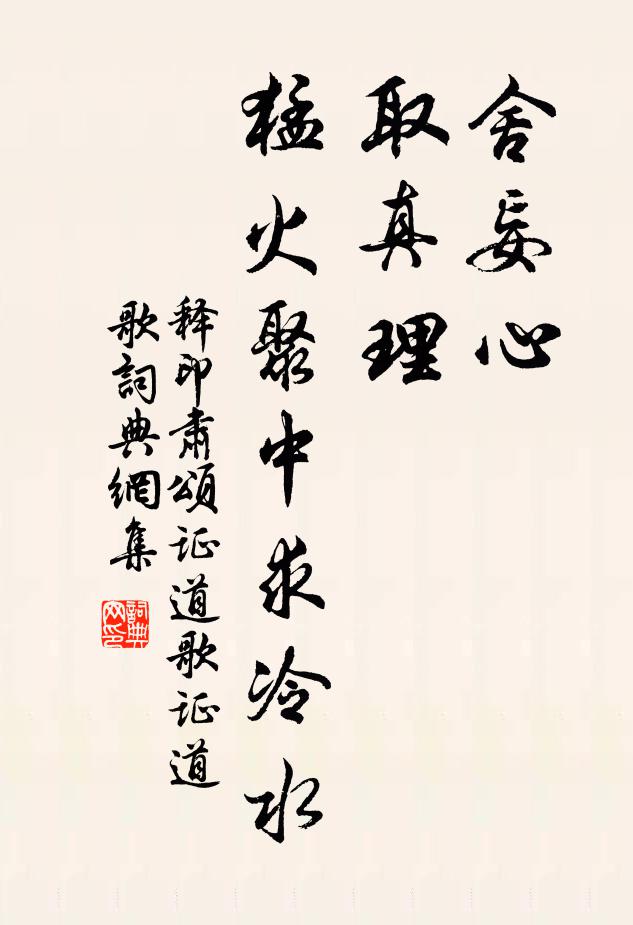 舍妄心
取真理
猛火聚中求冷水
释印肃颂证道歌证道
歌詞典網集
詞典
网印